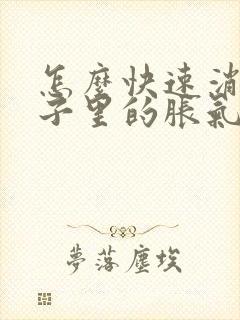 怎麼快速消
子里的脹氣
夢落塵埃